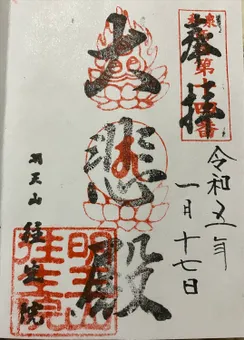 奉拝
第十四番
大悲殿
令和五年
一月十七日
明王山
往生院
明王山往生院